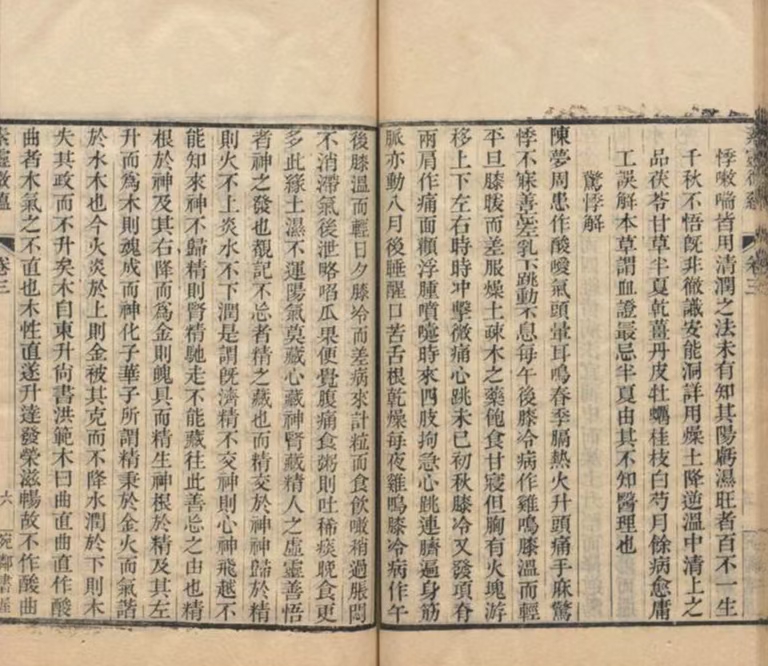 素靈微蘊 卷三
悸嗽喘皆用清潤之法未有知其陽虧濕旺者百不一生
千秋不悟旣非徹識安能洞詳用燥土降逆溫中清上之
品茯苓甘草半夏乾薑丹皮牡蠣桂枝白芍月餘病愈庸
工誤解本草謂血證最忌半夏由其不知醫理也
驚悸解
陳夢周患作酸嗳氣頭暈耳鳴春季膈熱火升頭痛手麻驚
悸不寐善忘左乳下跳動不息每午後膝冷病作雞鳴膝溫而輕
平旦膝暖而差服燥土疎木之藥飽食甘寢但胸有火塊游
移上下左右時時冲擊微痛心跳未已初秋膝冷又發項脊
兩肩作痛面顴浮腫噴嚏時來四肢拘急心跳連臍遍身筋
脈亦動八月後睡醒口苦舌根乾燥每夜雞鳴膝冷病作午
後膝溫而輕日夕膝冷而差病來計粒而食飲啖稍過脹悶
不消滯氣後泄略啗瓜果便覺腹痛食粥則吐稀痰晚食更
多此緣土濕不運陽氣莫藏心藏神腎藏精人之虛靈善悟
者神之發也覩記不忘者精之藏也而精交於神神歸於精
則火不上炎水不下潤是謂旣濟精不交神則心神飛越不
能知來神不歸精則腎精馳走不能藏往此善忘之由也精
根於神及其右降而爲金則魄具而精生神根於精及其左
升而爲木則魂成而神化子華子所謂精秉於金火而氣諧
於水木也今火炎於上則金被其克而不降水潤於下則木
失其政而不升矣木自東升尙書洪範木曰曲直曲直作酸
曲者木氣之不直也木性直遂升達發榮滋暢故不作酸曲
素靈微蘊 卷三 六 宛鄰書屋